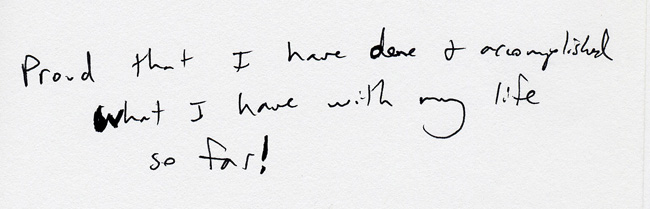 Proud that I have done & accomplished
what I have with my life
so far!